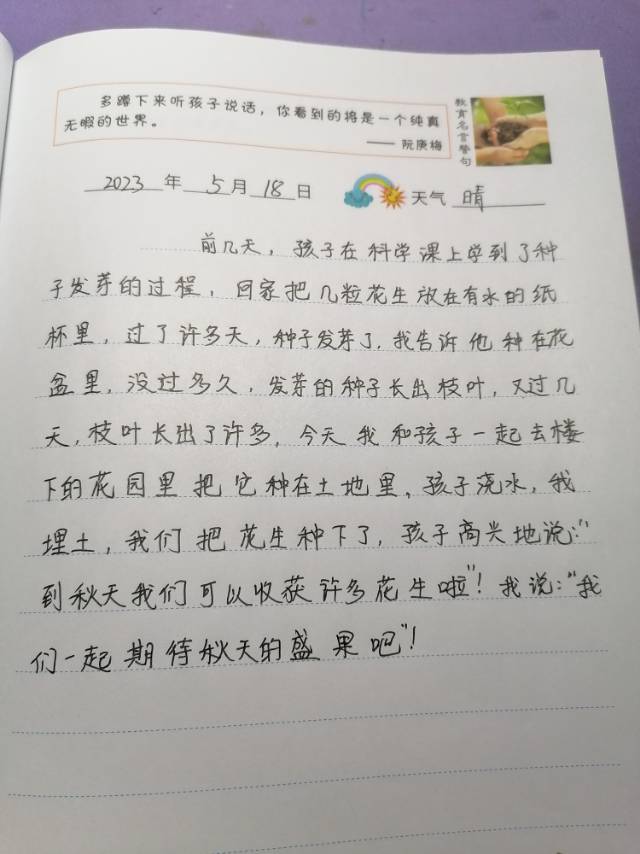 多蹲下来听孩子说话，你看到的将是一个纯真
无暇的世界。
—— 阮庚梅
教育名言警句
2023年5月18日 天气 晴
前几天，孩子在科学课上学到了种
子发芽的过程，回家把几粒花生放在有水的纸
杯里，过了许多天，种子发芽了，我告诉他种在花
盆里，没过多久，发芽的种子长出枝叶，又过几
天，枝叶长出了许多，今天我和孩子一起去楼
下的花园里把它种在土地里，孩子浇水，我
埋土，我们把花生种下了，孩子高兴地说：“
到秋天我们可以收获许多花生啦”！我说：“我
们一起期待秋天的盛果吧”！